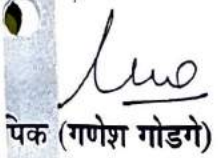 पिक (गणेश गोडगे)